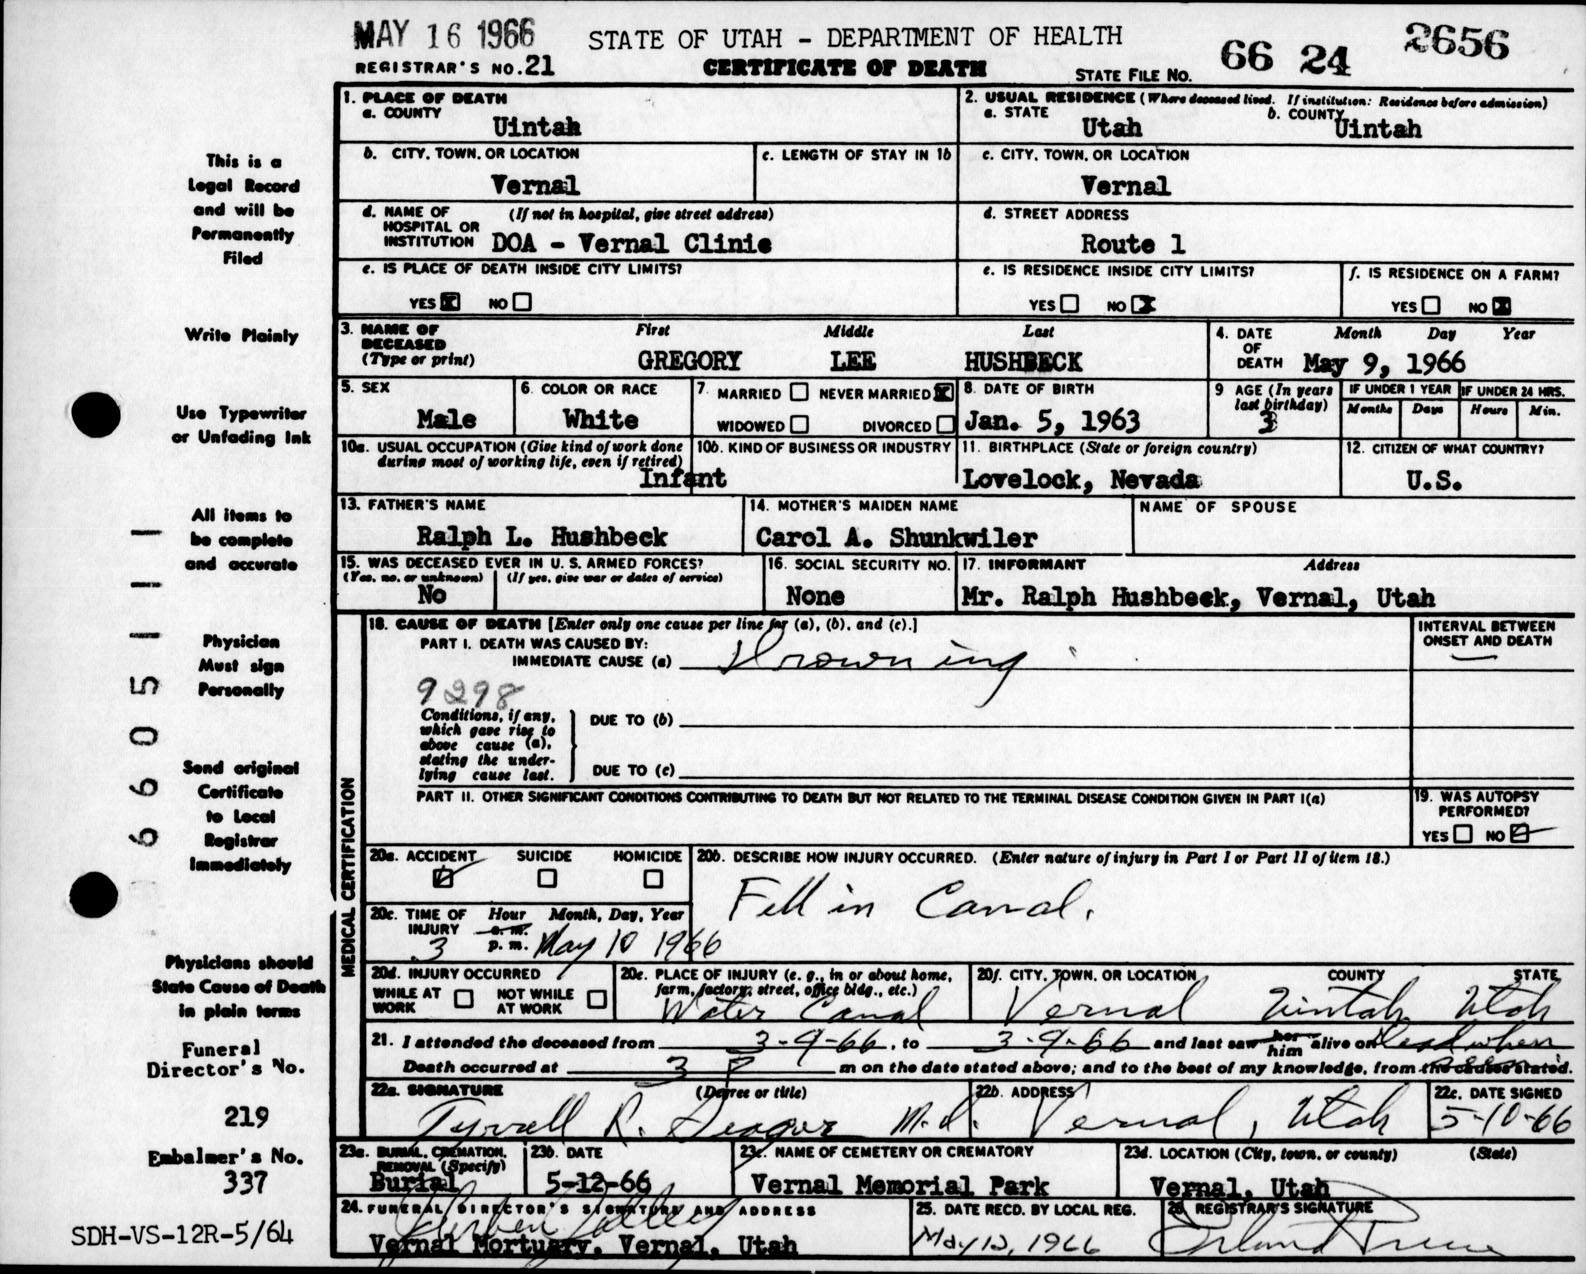 MAY 16 1966
STATE OF UTAH - DEPARTMENT OF HEALTH
66 24 2656
REGISTRAR'S NO. 21
CERTIFICATE OF DEATH
STATE FILE NO.
1. PLACE OF DEATH
a. COUNTY
Uintah
2. USUAL RESIDENCE (Where deceased lived. If institution: Residence before admission)
a. STATE
Utah
b. COUNTY
Uintah
b. CITY, TOWN, OR LOCATION
Vernal
c. LENGTH OF STAY IN 1b
c. CITY, TOWN, OR LOCATION
Vernal
d. NAME OF HOSPITAL OR INSTITUTION (If not in hospital, give street address)
DOA - Vernal Clinic
d. STREET ADDRESS
Route 1
e. IS PLACE OF DEATH INSIDE CITY LIMITS?
YES NO
e. IS RESIDENCE INSIDE CITY LIMITS?
YES NO
f. IS RESIDENCE ON A FARM?
YES NO
3. NAME OF DECEASED (Type or print)
First Middle Last
GREGORY LEE HUSHBECK
4. DATE OF DEATH
Month Day Year
May 9, 1966
5. SEX
Male
6. COLOR OR RACE
White
7. MARRIED NEVER MARRIED
WIDOWED DIVORCED
8. DATE OF BIRTH
Jan. 5, 1963
9 AGE (In years last birthday)
3
IF UNDER 1 YEAR
Months Days
IF UNDER 24 HRS.
Hours Min.
10a. USUAL OCCUPATION (Give kind of work done during most of working life, even if retired)
Infant
10b. KIND OF BUSINESS OR INDUSTRY
11. BIRTHPLACE (State or foreign country)
Lovelock, Nevada
12. CITIZEN OF WHAT COUNTRY?
U.S.
13. FATHER'S NAME
Ralph L. Hushbeck
14. MOTHER'S MAIDEN NAME
Carol A. Shunkwiler
NAME OF SPOUSE
15. WAS DECEASED EVER IN U. S. ARMED FORCES?
(Yes, no, or unknown) (If yes, give war or dates of service)
No
16. SOCIAL SECURITY NO.
None
17. INFORMANT Address
Mr. Ralph Hushbeck, Vernal, Utah
MEDICAL CERTIFICATION
18. CAUSE OF DEATH [Enter only one cause per line for (a), (b), and (c).]
PART I. DEATH WAS CAUSED BY:
IMMEDIATE CAUSE (a) Drowning
INTERVAL BETWEEN ONSET AND DEATH
9298
Conditions, if any, which gave rise to above cause (a), stating the underlying cause last.
DUE TO (b)
DUE TO (c)
PART II. OTHER SIGNIFICANT CONDITIONS CONTRIBUTING TO DEATH BUT NOT RELATED TO THE TERMINAL DISEASE CONDITION GIVEN IN PART I(a)
19. WAS AUTOPSY PERFORMED?
YES NO
20a. ACCIDENT SUICIDE HOMICIDE
20b. DESCRIBE HOW INJURY OCCURRED. (Enter nature of injury in Part I or Part II of item 18.)
Fell in Canal.
20c. TIME OF INJURY
Hour Month, Day, Year
3 a.m. p.m. May 10 1966
20d. INJURY OCCURRED
WHILE AT WORK NOT WHILE AT WORK
20e. PLACE OF INJURY (e. g., in or about home, farm, factory, street, office bldg., etc.)
Water Canal
20f. CITY, TOWN, OR LOCATION COUNTY STATE
Vernal Uintah Utah
21. I attended the deceased from 3-9-66, to 3-9-66 and last saw her him alive on Dead when seen.
Death occurred at 3 P m on the date stated above; and to the best of my knowledge, from the causes stated.
22a. SIGNATURE (Degree or title)
Tyrrell R. Seager M.D.
22b. ADDRESS
Vernal, Utah
22c. DATE SIGNED
5-10-66
23a. BURIAL, CREMATION, REMOVAL (Specify)
Burial
23b. DATE
5-12-66
23c. NAME OF CEMETERY OR CREMATORY
Vernal Memorial Park
23d. LOCATION (City, town, or county) (State)
Vernal, Utah
24. FUNERAL DIRECTOR'S SIGNATURE AND ADDRESS
Vernal Mortuary, Vernal, Utah
25. DATE RECD. BY LOCAL REG.
May 12, 1966
26. REGISTRAR'S SIGNATURE
This is a
Legal Record
and will be
Permanently
Filed
Write Plainly
Use Typewriter
or Unfading Ink
All items to
be complete
and accurate
Physician
Must sign
Personally
Send original
Certificate
to Local
Registrar
Immediately
Physicians should
State Cause of Death
in plain terms
Funeral
Director's No.
219
Embalmer's No.
337
SDH-VS-12R-5/64
66051111